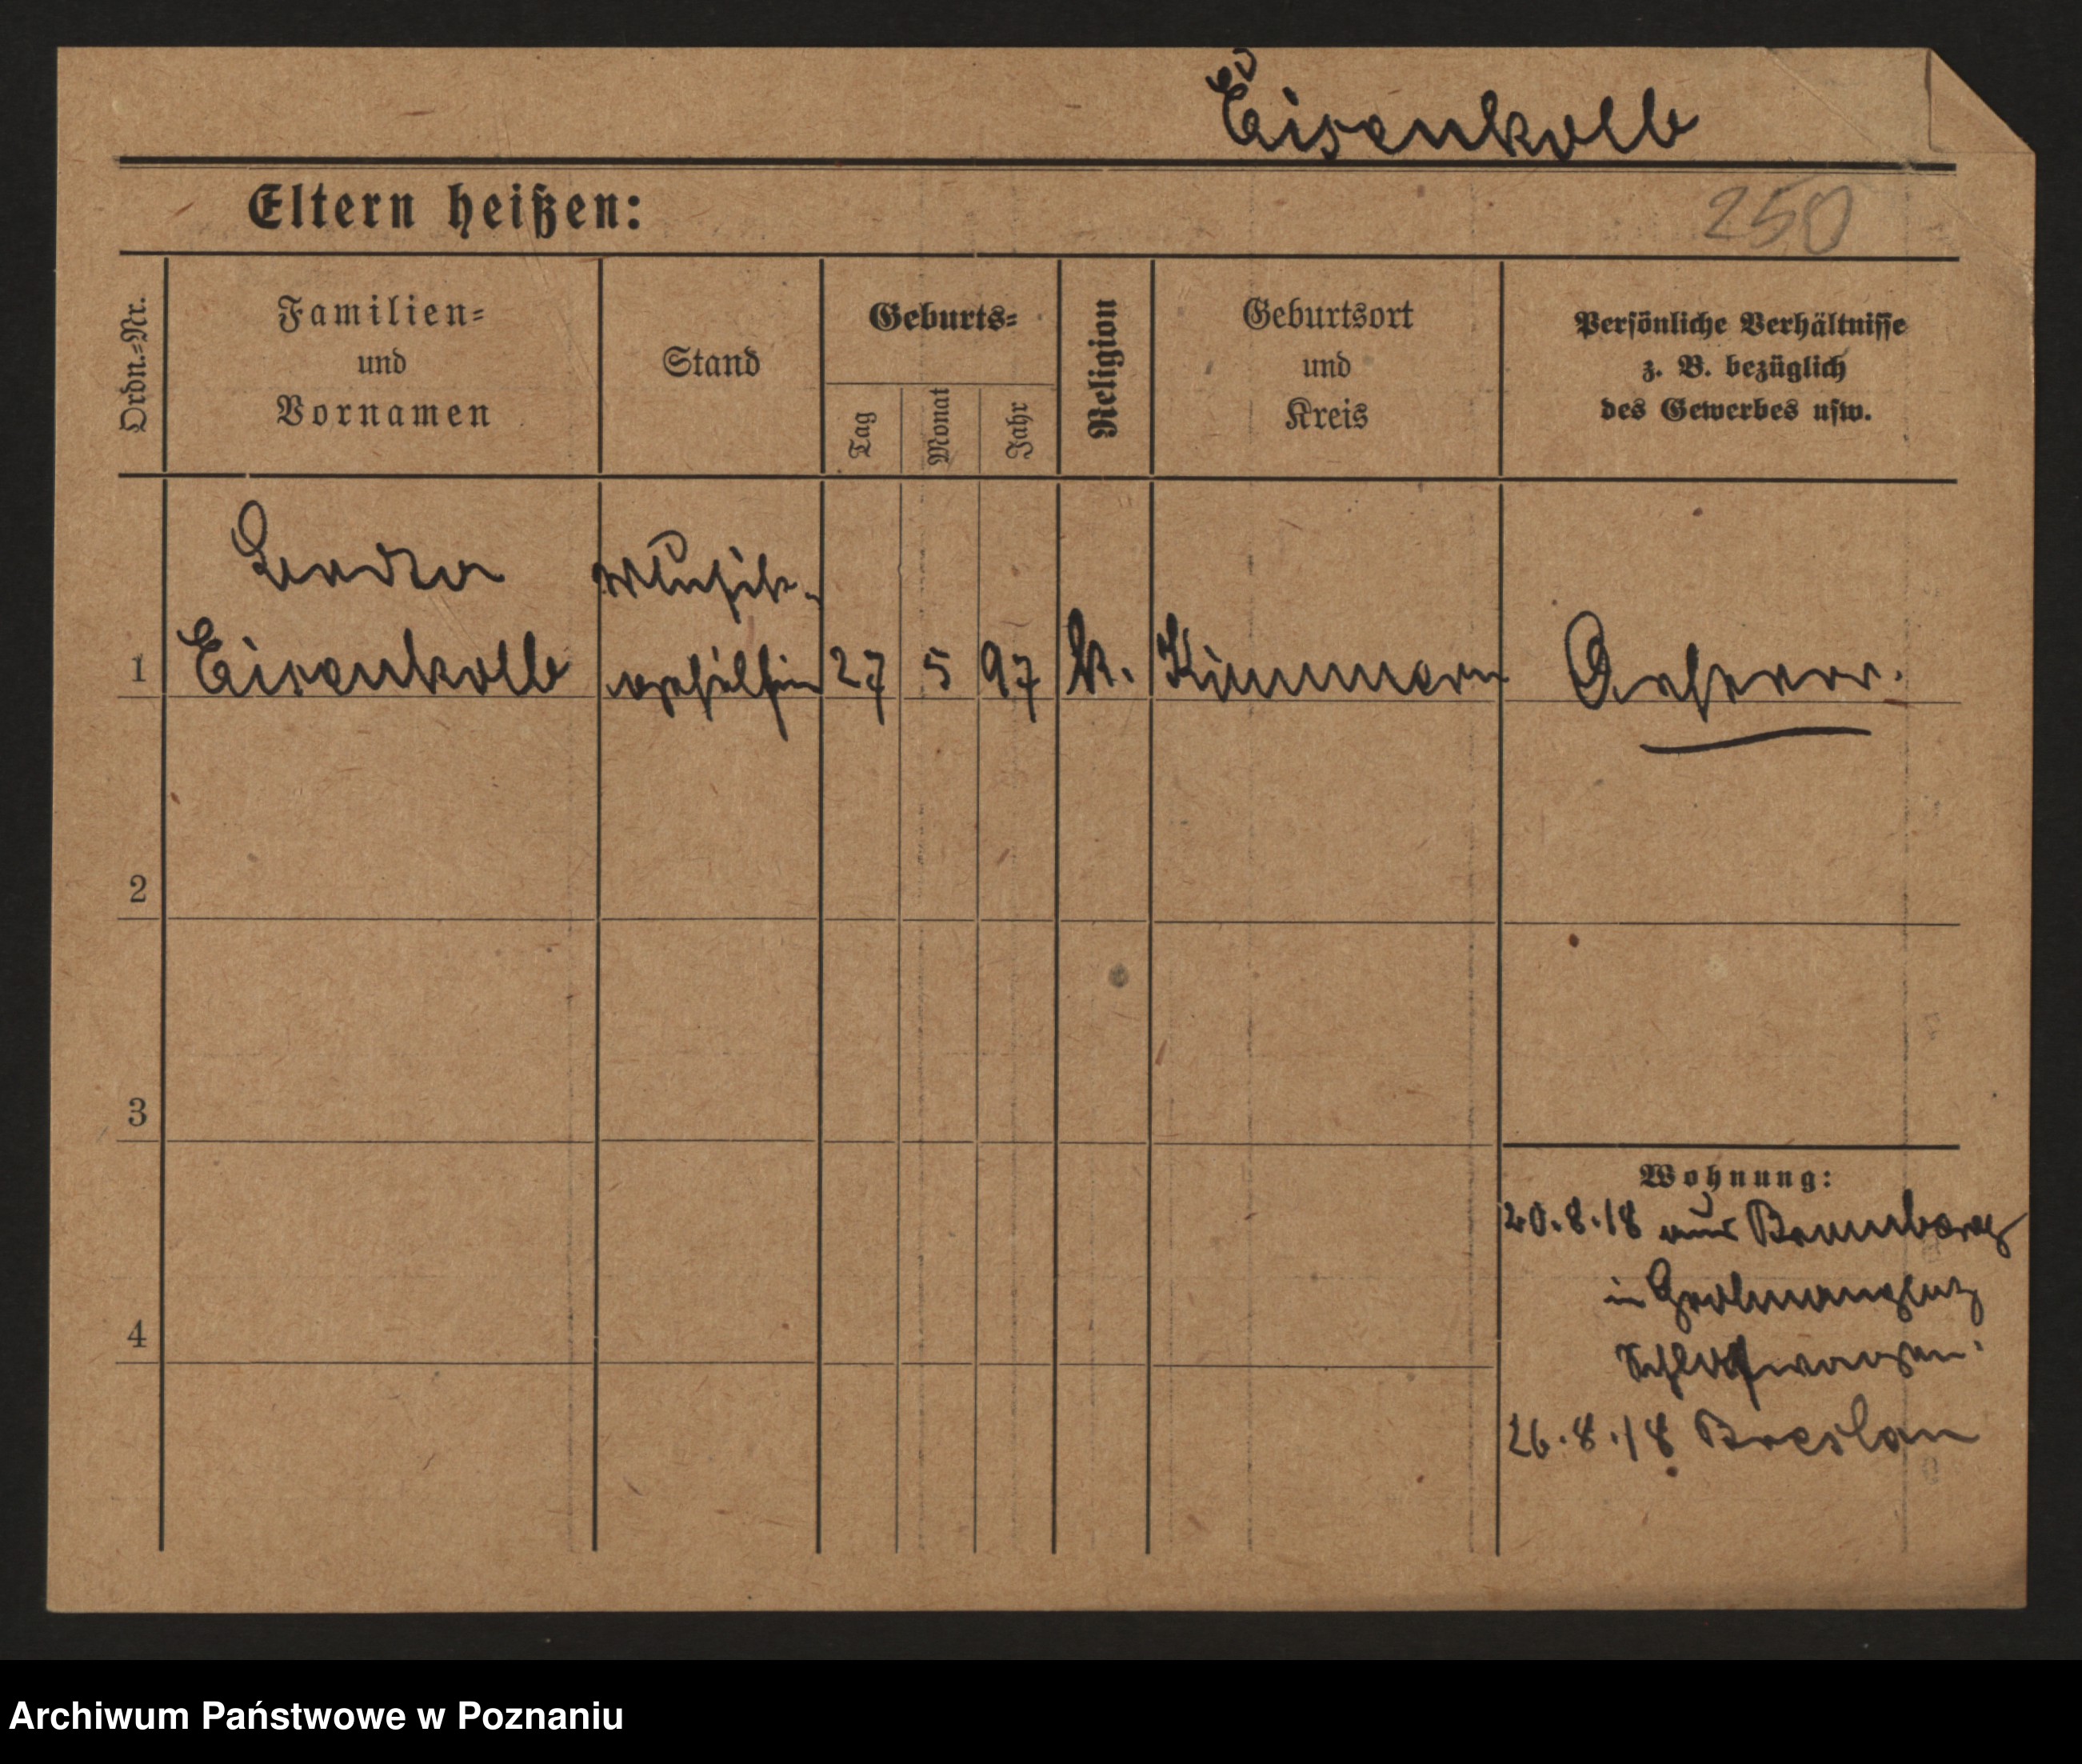 Eisenkolb
Eltern heißen:
250
Ordn.=Nr.
Familien=
und
Vornamen
Stand
Geburts=
Tag
Monat
Jahr
Religion
Geburtsort
und
Kreis
Persönliche Verhältnisse
z. B. bezüglich
des Gewerbes usw.
Musik-
1 Eisenkolb gehilfin 27 5 97 k. Kimmern
2
3
4
Wohnung:
20.8.18 aus Bromberg
in
Schlafwagen.
26.8.18 Breslau
Archiwum Państwowe w Poznaniu